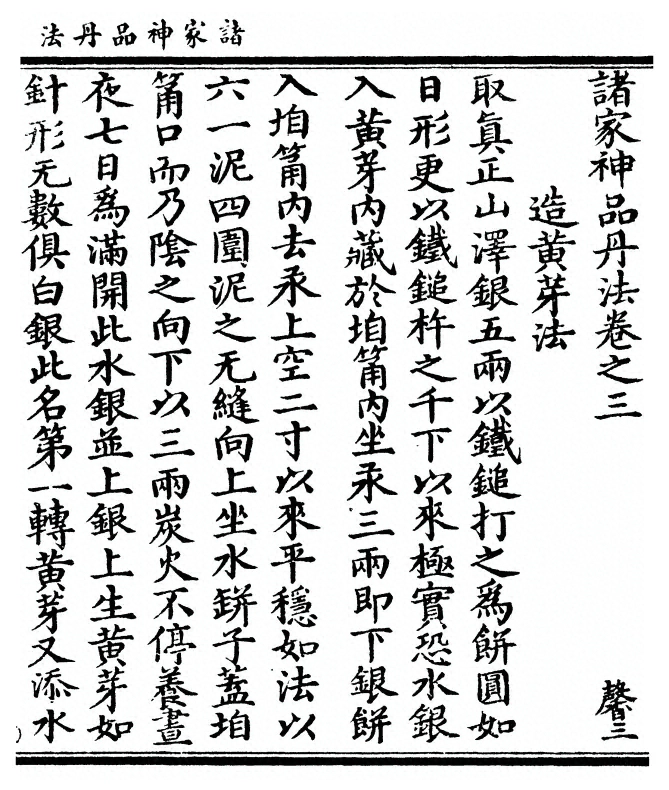 諸家神品丹法
諸家神品丹法卷之三 馨三
造黃芽法
取眞正山澤銀五兩以鐵鎚打之爲餅圓如
日形更以鐵鎚杵之千下以來極實恐水銀
入黃芽內藏於坩筩內坐汞三兩即下銀餅
入坩筩內去汞上空二寸以來平穩如法以
六一泥四圍泥之无縫向上坐水缾子蓋坩
筩口而乃陰之向下以三兩炭火不停養晝
夜七日爲滿開此水銀並上銀上生黃芽如
針形无數俱白銀此名第一轉黃芽又添水